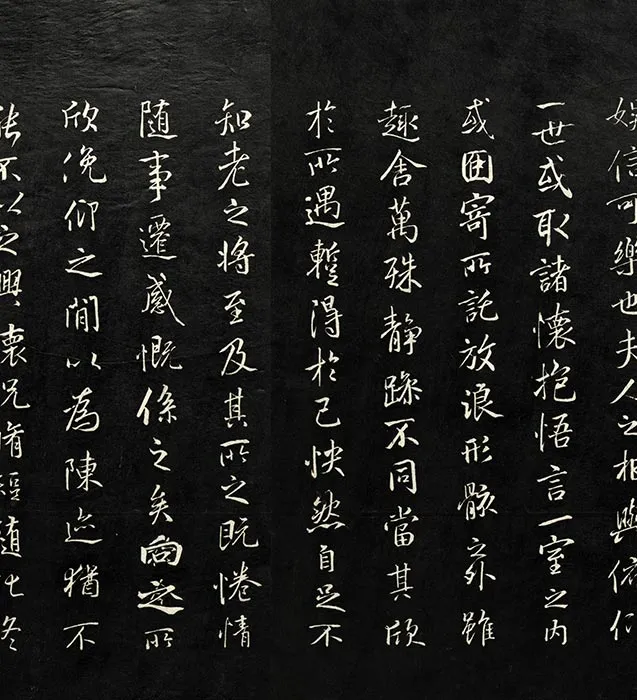 娛信可樂也夫人之相與俯仰
一世或取諸懷抱悟言一室之內
或因寄所託放浪形骸之外雖
趣舍萬殊静躁不同當其欣
於所遇蹔得於己怏然自足不
知老之將至及其所之既惓情
随事遷感慨係之矣向之所
欣俛仰之間以為陳迹猶不
能不以之興懷況脩短随化終